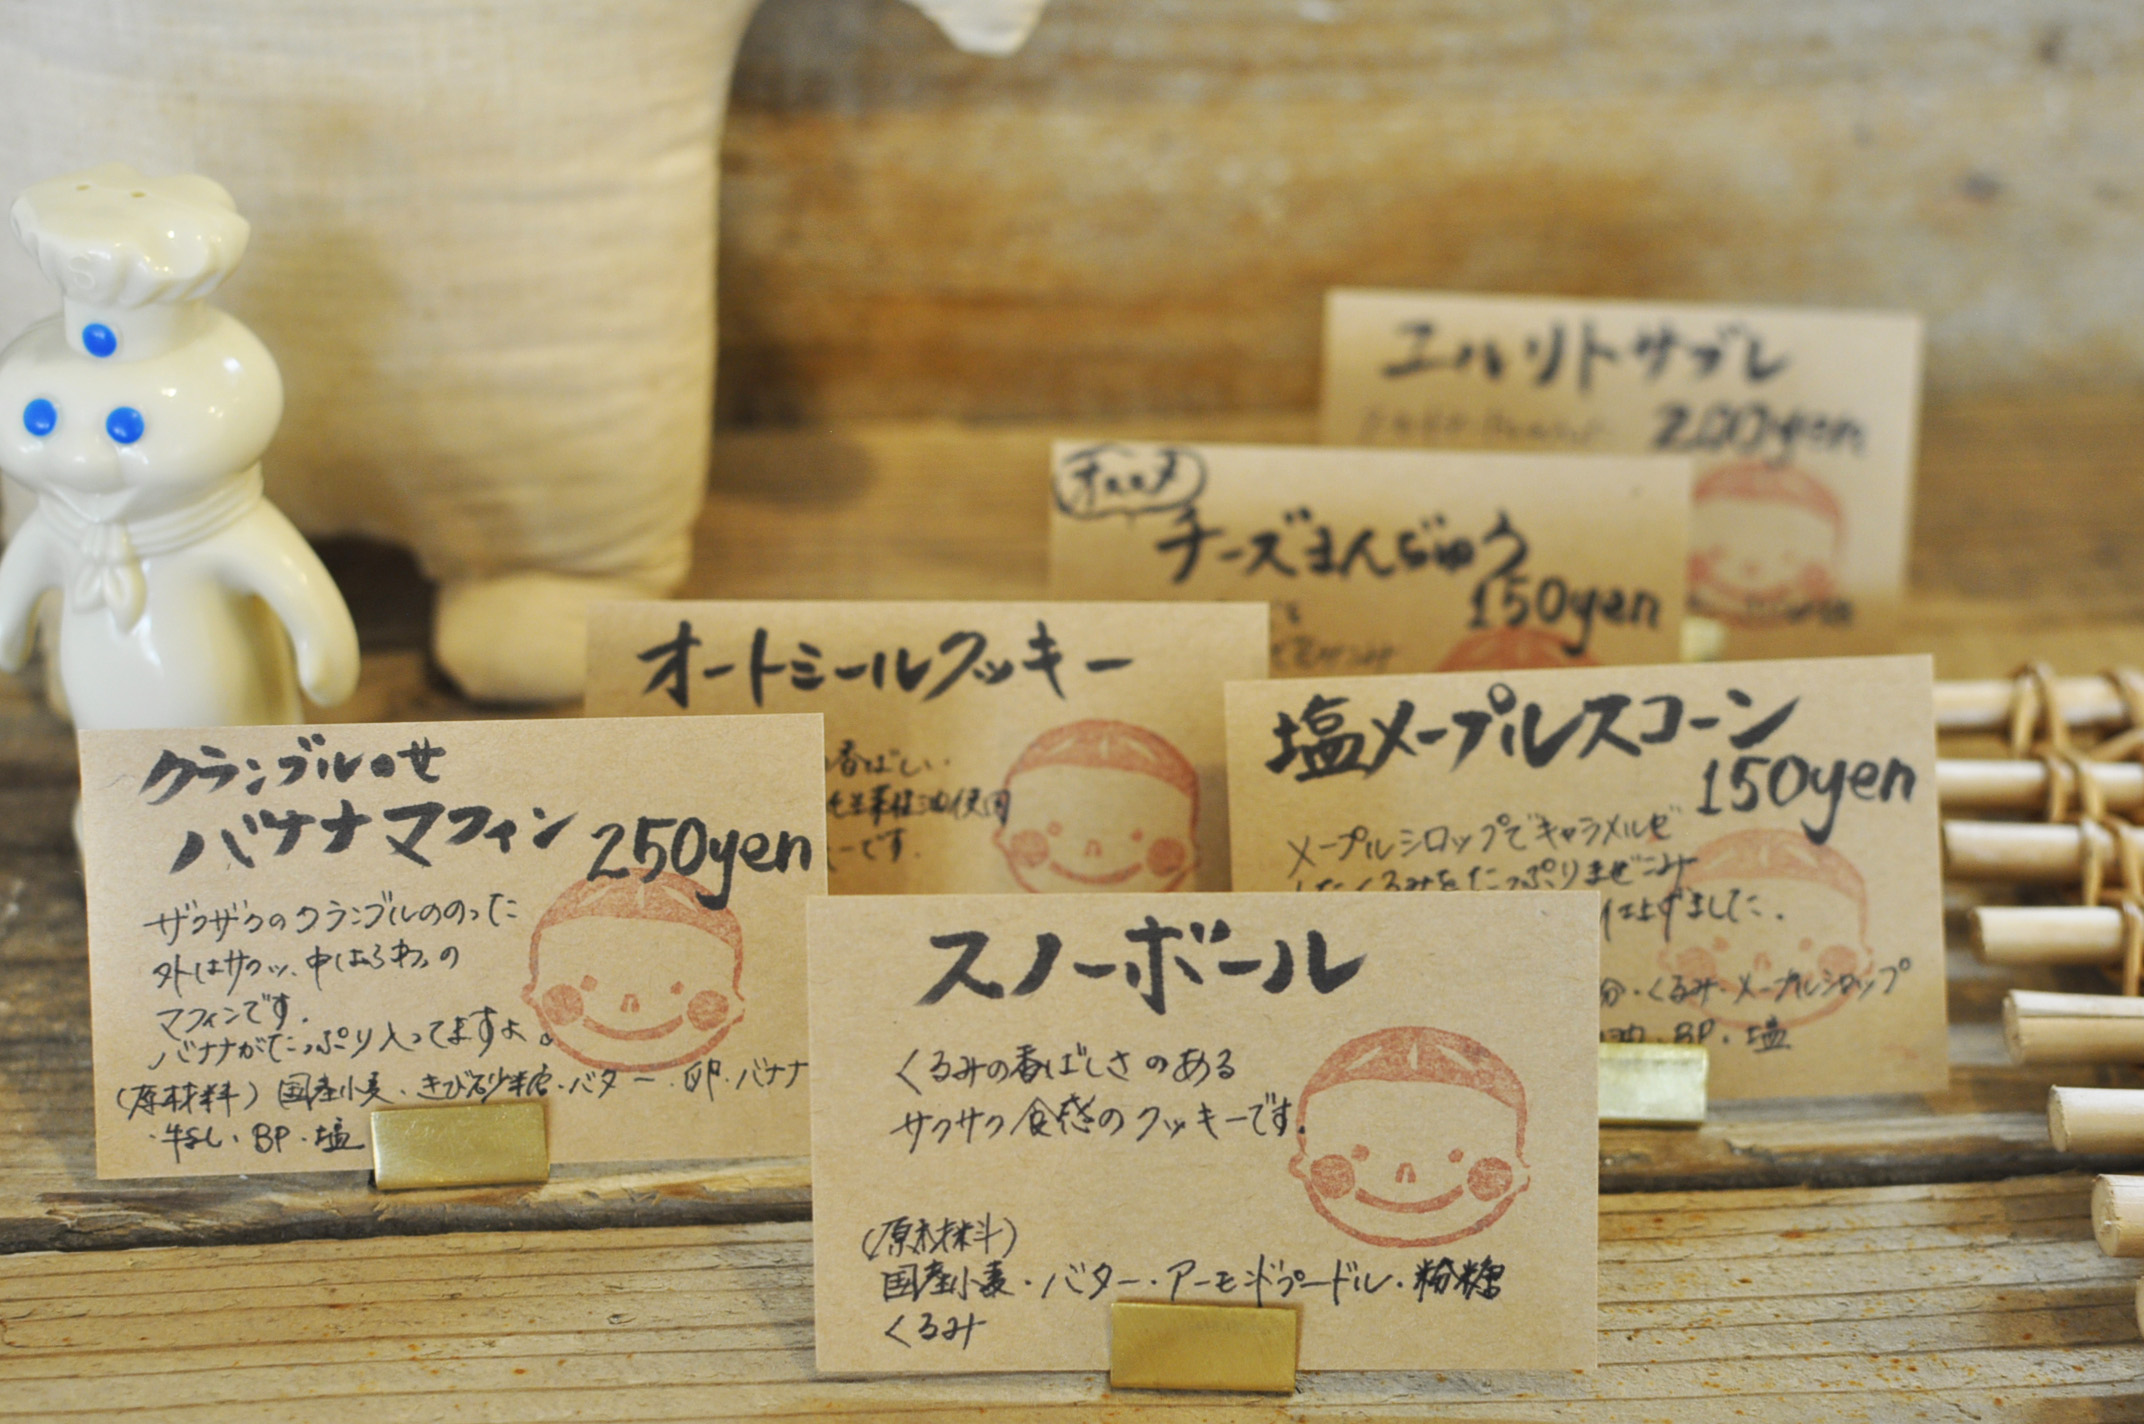 エルリトサブレ
200yen
オススメ
チーズまんじゅう
150yen
オートミールクッキー
香ばしい
使用
ーです.
塩メープルスコーン
150yen
メープルシロップでキャラメルゼ
したくるみをたっぷりまぜこみ
仕上げました.
分・くるみ・メープルシロップ
油・BP・塩
クランブルのせ
バナナマフィン 250yen
ザクザクのクランブルののった
外はサクッ、中はふわっの
マフィンです.
バナナがたっぷり入ってますよ。
(原材料) 国産小麦・きび砂糖・バター・卵・バナナ
・牛乳・BP・塩
スノーボール
くるみの香ばしさのある
サクサク食感のクッキーです.
(原材料)
国産小麦・バター・アーモンドプードル・粉糖
くるみ